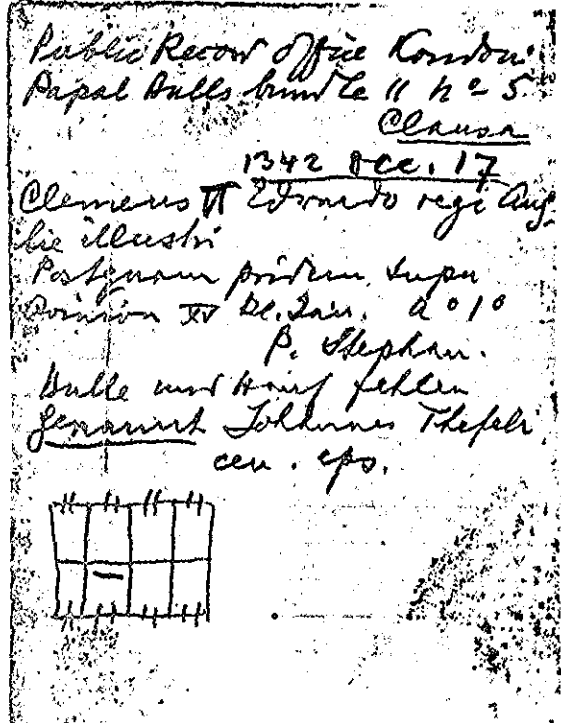 Public Record Office London
Papal Bulls bundle 11 nº 5
Clausa
1342 Dec. 17
Clemens VI Edwardo regi Ang
lie illustri
Postquam pridem super
XVI kl. Jan. aº 1º
P. Stephan.
Bulle und Hanf fehlen
genannt Johannes
eps.